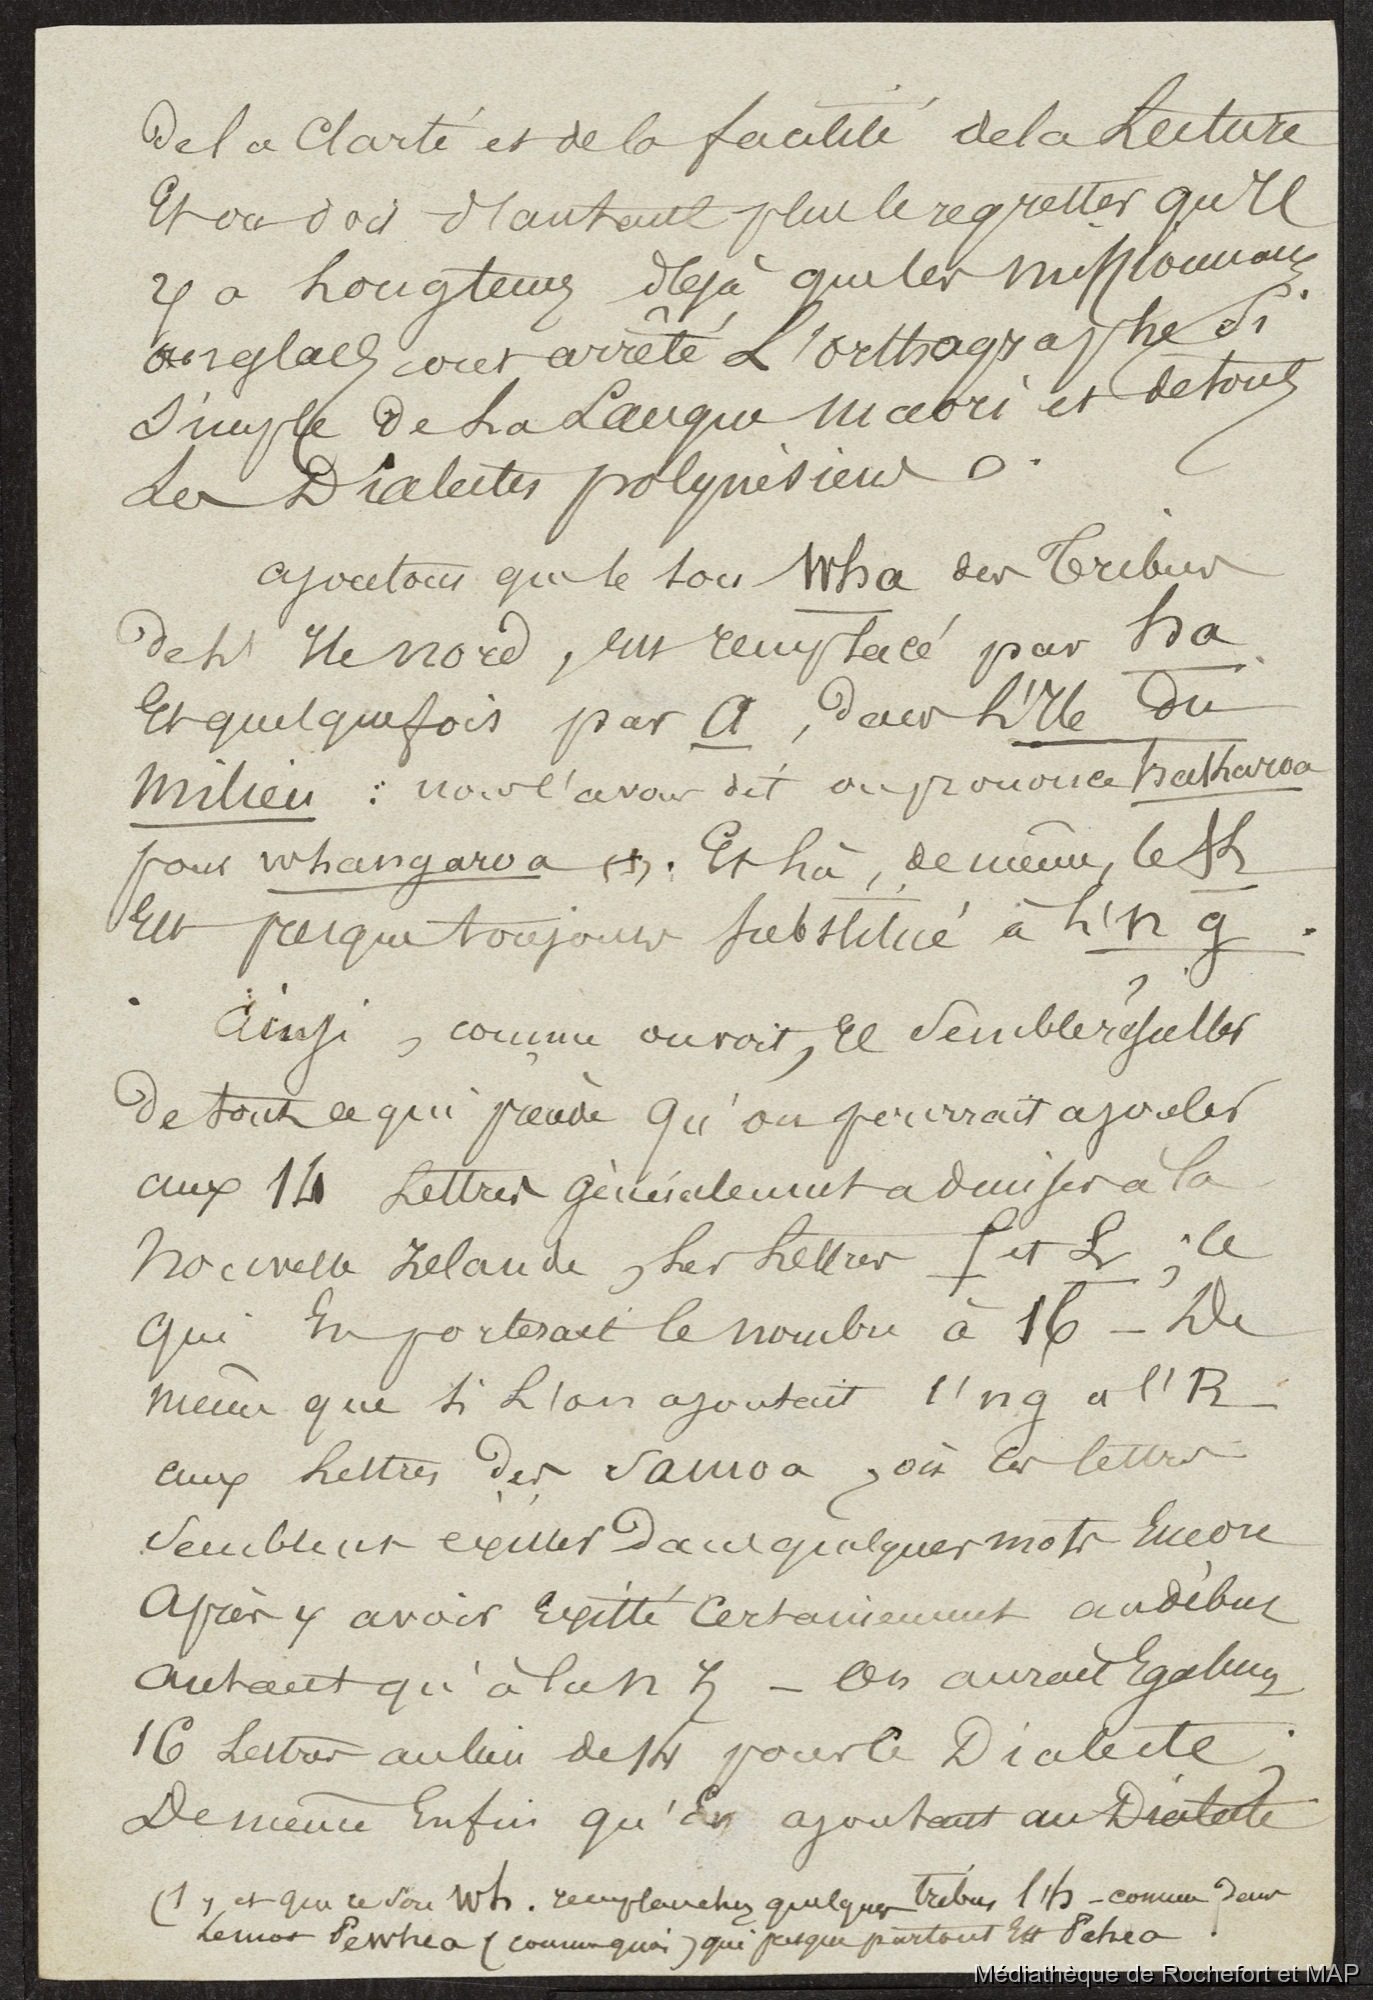 De la Clarté et de la facilité de la Lecture
Et on doit d'autant plus le regretter qu'Il
y a Longtems déjà que les missionnaires
anglais ont arrêté L'orthographe si
simple de La Langue maori et de tous
Les Dialectes polynésiens.
ajoutons que le son Wha des Tribus
de L'Ile nord, est remplacé par ha
Et quelquefois par A, dans L'Ile du
Milieu : nous l'avons dit on prononce hakaroa
pour whangaroa (1). Et Là, de même, le K
Est presque toujours substitué à L'n g.
Ainsi, comme on voit, Il semble résulter
de tout ce qui précède qu'on pourrait ajouter
aux 14 Lettres généralement admises à la
Nouvelle Zelande, Les Lettres f et L ; ce
qui En porterait le nombre à 16 - De
même que si L'on ajoutait l'ng et l'R
aux Lettres des Samoa, où ces lettres
semblent exister dans quelques mots Encore
Après y avoir Existé Certainement au début
Autant qu'à la n Z - On aurait Egalemt
16 Lettres au lieu de 14 pour le Dialecte ;
De même Enfin qu'En ajoutant au Dialecte
(1) et que ce son Wh. remplace chez quelques tribus l'h - comme dans
Le mot Pewhea (comme quoi) qui presque partout Est Pehea
Médiathèque de Rochefort et MAP